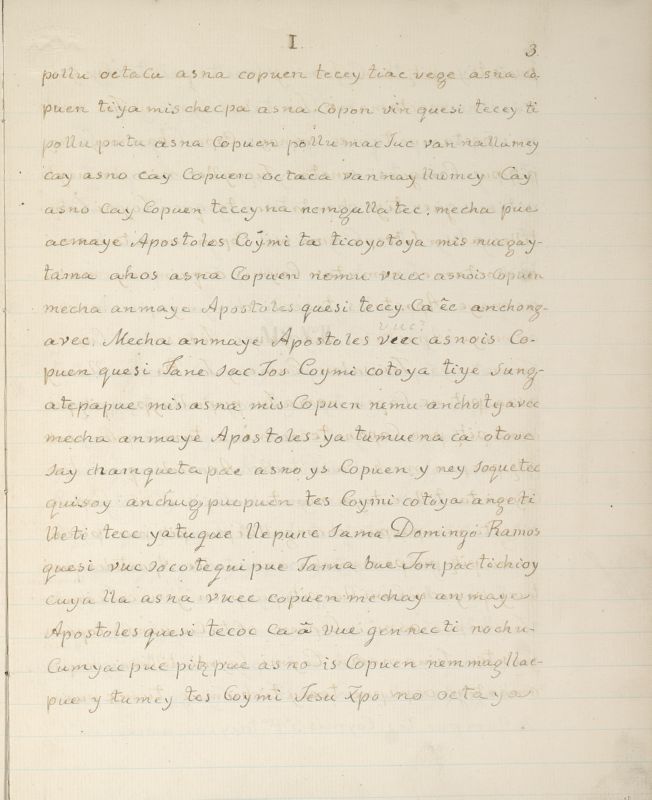 I.
3.
pollu octacu asna copuen tecey tiac vege asna co,
puen tiya mis checpa asna Copon vin quesi tecey ti
pollu putu asna Copuen pollu mac Juc van nallumey
cay asno cay Copuen octaca van nay llumey Cay
asno cay Copuen tecey na nemgulla tec. mecha pue
acmaye Apostoles Coỹmi ta ticoyotoya mis nucgay-
tama ahos asna Copuen nemu vuec asnois Copuen
mecha anmaye Apostoles quesi tecey Ca ẽc anchong-
vuc?
avec. Mecha anmaye Apostoles veec asnois Co-
puen quesi Tane sac Tos Coymi cotoya tiye sung-
atepapue mis asna mis Copuen nemu anchotgavec
mecha anmaye Apostoles ya tumuena ca otove
say chamqueta pae asno ys Copuen y ney soquetec
quisoy anchug puepuen tes Coymi cotoya ange ti
lleti tecc yatuque llepunc Tama Domingo Ramos
quesi vuc soco tequi pue Tama bue Ton pactichioy
cuya lla asna vuec copuen mechay anmaye
Apostoles quesi tecoc Ca ã vue gennecti nochu-
Cumyac pue pitz pue asno is Copuen nem magllac-
pue y tumey tes Coymi Jesu X̃po no octaya